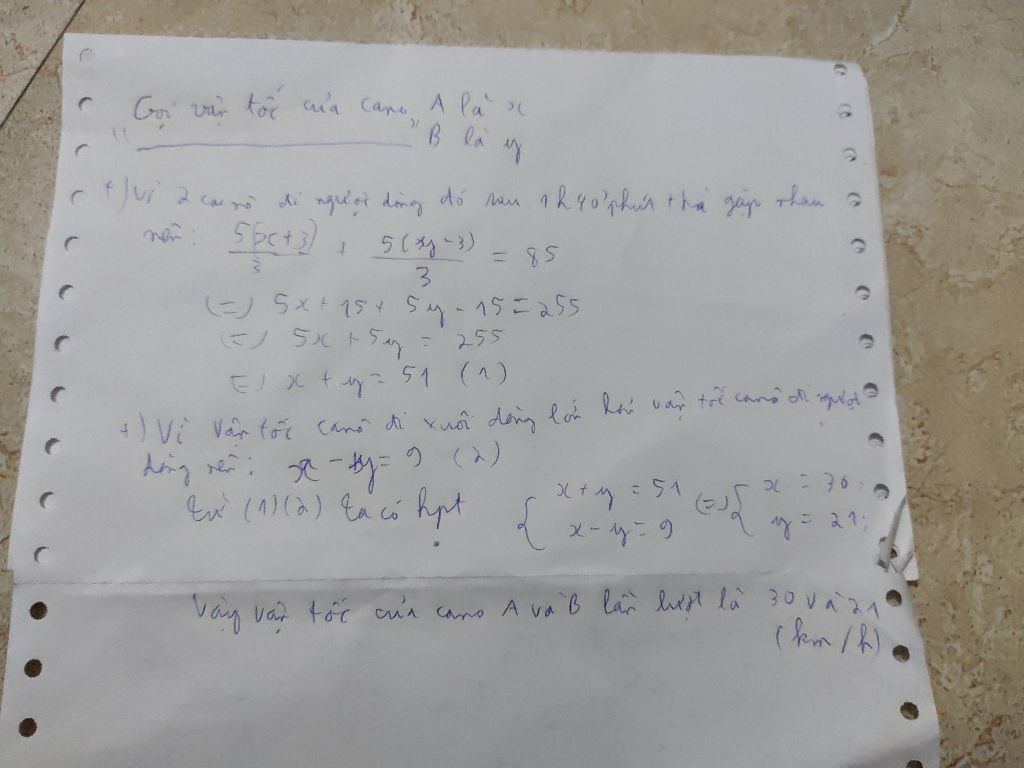 Gọi vận tốc của cano A là x
" ________ " B là y
+) Vì 2 ca nô đi ngược dòng đó sau 1h40' phút thì gặp nhau
nên: 5(x+3)/3 + 5(y-3)/3 = 85
(=) 5x + 15 + 5y - 15 = 255
(=) 5x + 5y = 255
(=) x + y = 51 (1)
+) Vì vận tốc canô đi xuôi dòng lớn hơn vận tốc canô đi ngược
dòng nên: x - y = 9 (2)
từ (1)(2) ta có hpt { x + y = 51 ; x - y = 9 (=) { x = 30 ; y = 21
Vậy vận tốc của cano A và B lần lượt là 30 và 21
(km/h)